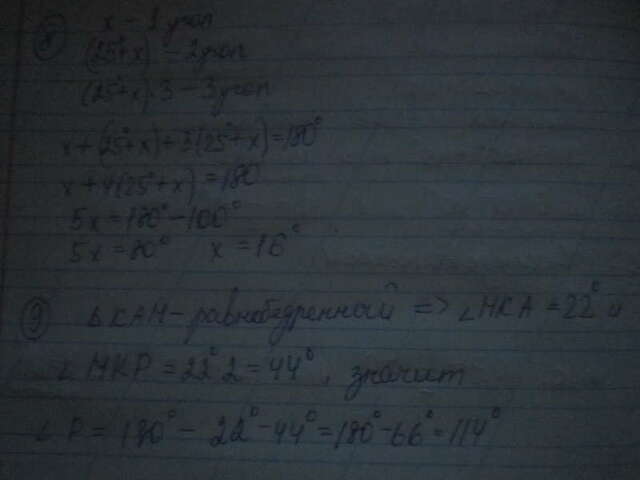 8) x – 1 угол
(25°+x) – 2 угол
(25°+x)·3 – 3 угол
x+(25°+x)+3(25°+x)=180°
x+4(25°+x)=180
5x=180°-100°
5x=80° x=16°
9) ΔKAM-равнобедренный => ∠MKA=22° и
∠MKP=22°·2=44°, значит
∠P=180°-22°-44°=180°-66°=114°